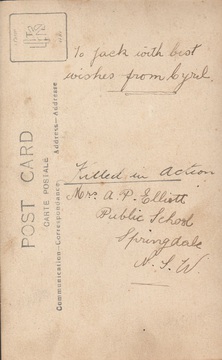 To Jack with best
wishes from Cyril.
Killed in Action
Mrs A. P. Elliott
Public School
Springdale
N. S. W
POST CARD
CARTE POSTALE
Communication-Correspondance
Address-Addresse